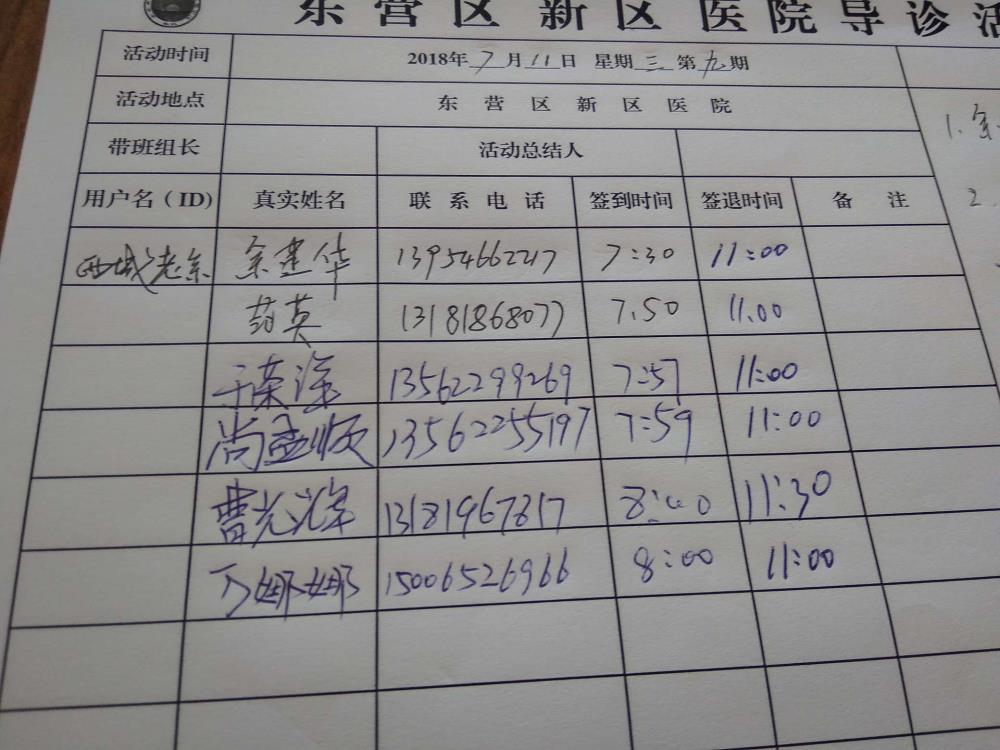 东营区新区医院导诊活
活动时间 2018年7月11日 星期三 第九期
活动地点 东营区新区医院
带班组长 活动总结人
用户名（ID) 真实姓名 联系电话 签到时间 签退时间 备注
西城老余 余建华 13954662217 7:30 11:00
药英 13181868077 7.50 11.00
于荣 13562299269 7:57 11:00
尚孟顺 13562255197 7:59 11:00
曹光 13181967817 8:00 11:30
万娜娜 15006526966 8:00 11:00
1.
2.